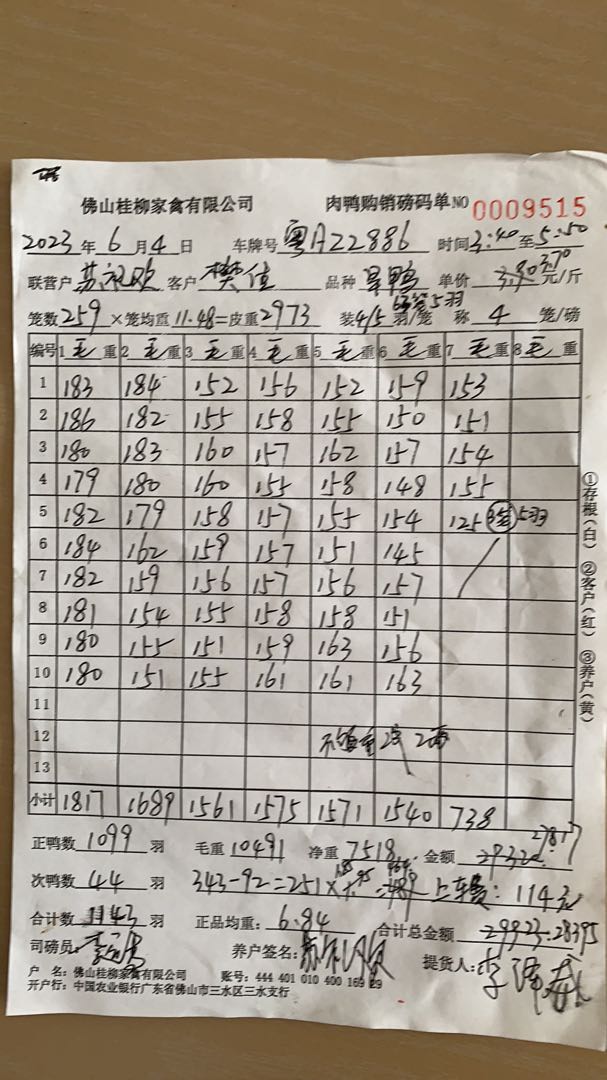 佛山桂柳家禽有限公司 肉鸭购销磅码单 NO 0009515
2023年 6月 4日 车牌号 粤A22886 时间 3:40 至 5:50
联营户 客户 樊佳 品种 旱鸭 单价 3.90 3.70 元/斤
笼数 259 ×笼均重 11.48 =皮重 2973 装 4/5 羽/笼 称 4 笼/磅
5羽
编号 1 毛 重 2 毛 重 3 毛 重 4 毛 重 5 毛 重 6 毛 重 7 毛 重 8 毛 重
1 183 184 152 156 152 159 153
2 186 182 155 158 155 150 151
3 180 183 160 157 162 157 154
4 179 180 160 155 158 148 155
5 182 179 158 157 155 154 125 5羽
6 184 162 159 157 151 145
7 182 159 156 157 156 157
8 181 154 155 158 158 151
9 180 155 151 159 163 156
10 180 151 155 161 161 163
11
12
13
小计 1817 1689 1561 1575 1571 1540 738
27817
正鸭数 1099 羽 毛重 10491 净重 7518 金额
次鸭数 44 羽 343-92=251× 上车费：114元
合计数 1143 羽 正品均重： 6.84 合计总金额 28395
司磅员： 养户签名： 提货人：
户 名：佛山桂柳家禽有限公司 账号：444 401 010 400 169 29
开户行：中国农业银行广东省佛山市三水区三水支行
①存根(白) ②客户(红) ③养户(黄)